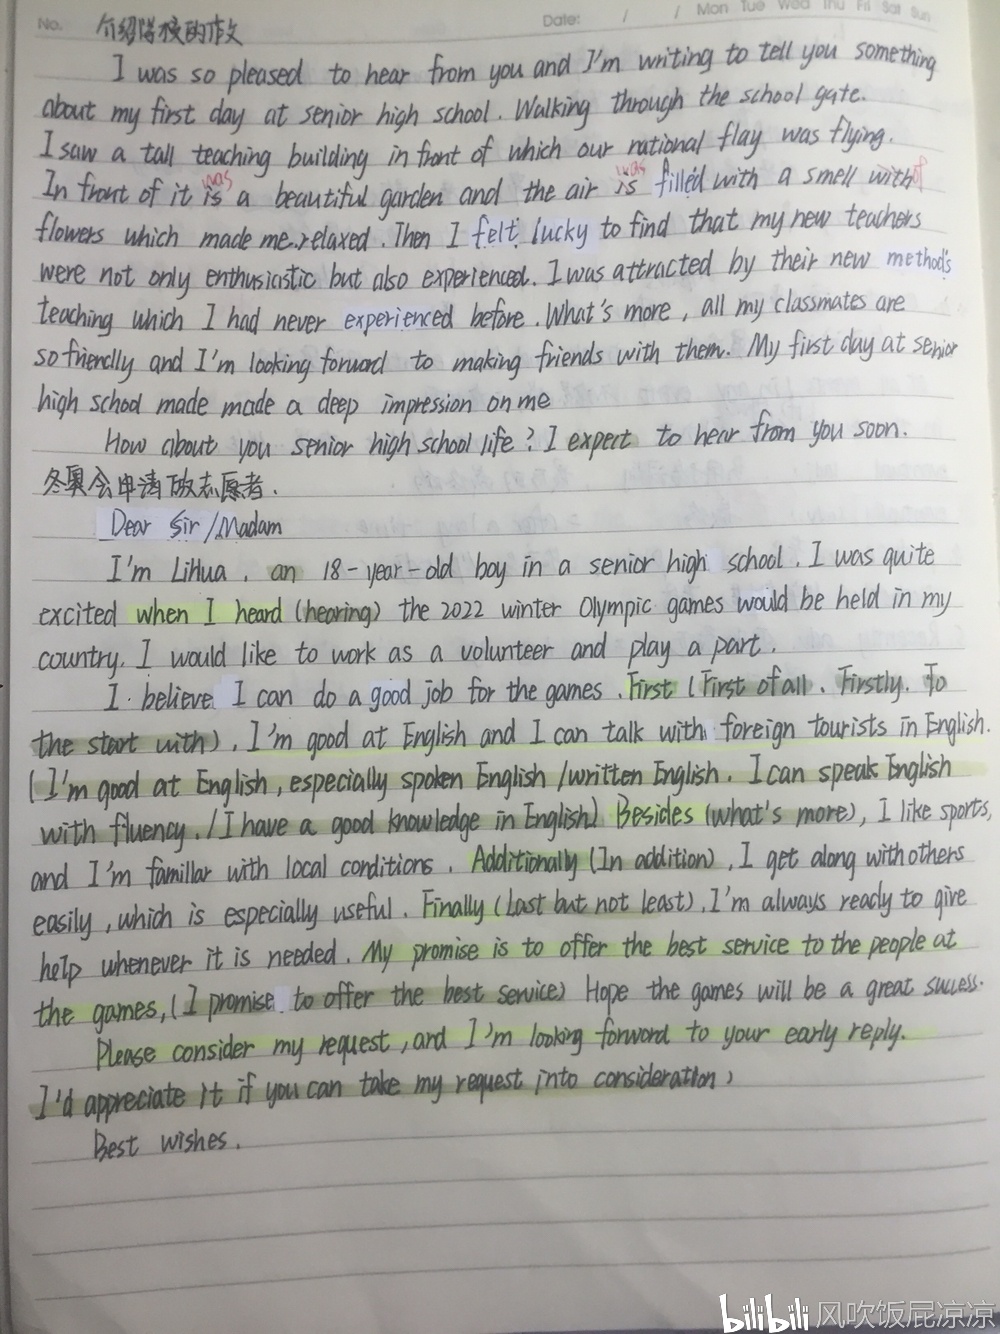 No. Date: / / Mon Tue Wed Thu Fri Sat Sun
介绍学校的作文
I was so pleased to hear from you and I'm writing to tell you something
about my first day at senior high school. Walking through the school gate.
I saw a tall teaching building in front of which our national flay was flying.
was was of
In front of it is a beautiful garden and the air is filled with a smell with
flowers which made me relaxed. Then I felt lucky to find that my new teachers
were not only enthusiastic but also experienced. I was attracted by their new method's
teaching which I had never experienced before. What's more, all my classmates are
so friendly and I'm looking forward to making friends with them. My first day at senior
high school made made a deep impression on me
How about you senior high school life? I expert to hear from you soon.
冬奥会申请做志愿者.
Dear Sir/Madam
I'm LiHua, an 18-year-old boy in a senior high school. I was quite
excited when I heard (hearing) the 2022 winter Olympic games would be held in my
country. I would like to work as a volunteer and play a part.
I believe I can do a good job for the games. First (First of all. Firstly. To
the start with), I'm good at English and I can talk with foreign tourists in English.
(I'm good at English, especially spoken English/written English. I can speak English
with fluency./I have a good knowledge in English) Besides (what's more), I like sports,
and I'm famillar with local conditions. Additionally (In addition), I get along with others
easily, which is especially useful. Finally (Last but not least), I'm always ready to give
help whenever it is needed. My promise is to offer the best service to the people at
the games, (I promise to offer the best service) Hope the games will be a great success.
Please consider my request, and I'm looking forword to your early reply.
I'd appreciate it if you can take my request into consideration)
Best wishes.
bilibili 风吹饭屁凉凉